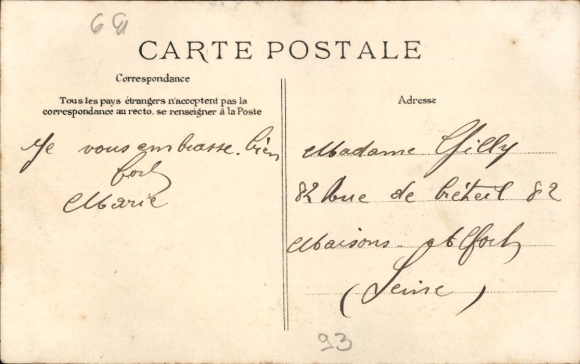 68
CARTE POSTALE
Correspondance
Tous les pays étrangers n'acceptent pas la
correspondance au recto, se renseigner à la Poste
Je vous embrasse bien
fort
Marie
Adresse
Madame Gilly
82 Rue de Créteil 82
Maisons-Alfort
(Seine)
93